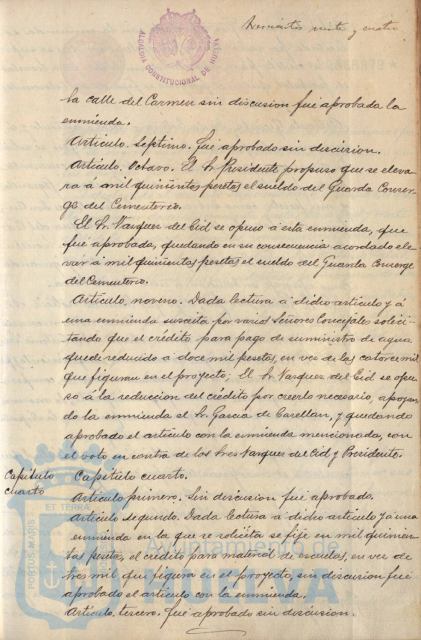 Doscientos veinte y cuatro
ALCALDIA CONSTITUCIONAL DE HUELVA
la calle del Carmen sin discusion fué aprobada la
enmienda.
Articulo. Septimo. Fué aprobado sin discusion.
Articulo. Octavo. El Sr. Presidente propuso que se eleva
ra á mil quinientas pesetas el sueldo del Guarda Conser
ge del Cementerio.
El Sr. Vazquez del Cid se opuso á esta enmienda, que
fué aprobada, quedando en su consecuencia acordado ele
var á mil quinientas pesetas el sueldo del Guarda Conserge
del Cementerio.
Articulo, noveno. Dada lectura á dicho articulo y á
una enmienda suscrita por varios Señores Concejales solici-
tando que el crédito para pago de suministro de agua
quede reducido a doce mil pesetas, en vez de las catorce mil
que figuran en el proyecto; El Sr. Vazquez del Cid se opu
so á la reducción del crédito por creerlo necesario, apoyan
do la enmienda el Sr. Garcia de Carellan, y quedando
aprobado el articulo con la enmienda mencionada, con
el voto en contra de los Sres Vazquez del Cid y Presidente.
Capítulo
cuarto
Capitulo cuarto.
Articulo primero. Sin discusion fué aprobado.
Articulo segundo. Dada lectura á dicho articulo y á una
enmienda en la que se solicita se fije en mil quinien
tas pesetas, el crédito para material de escuelas, en vez de
tres mil que figura en el proyecto, sin discusion fué
aprobado el articulo con la enmienda.
Articulo, tercero. fué aprobado sin discusion.
PORTUS MARIS ET TERRAE
Ayuntamiento
HUELVA